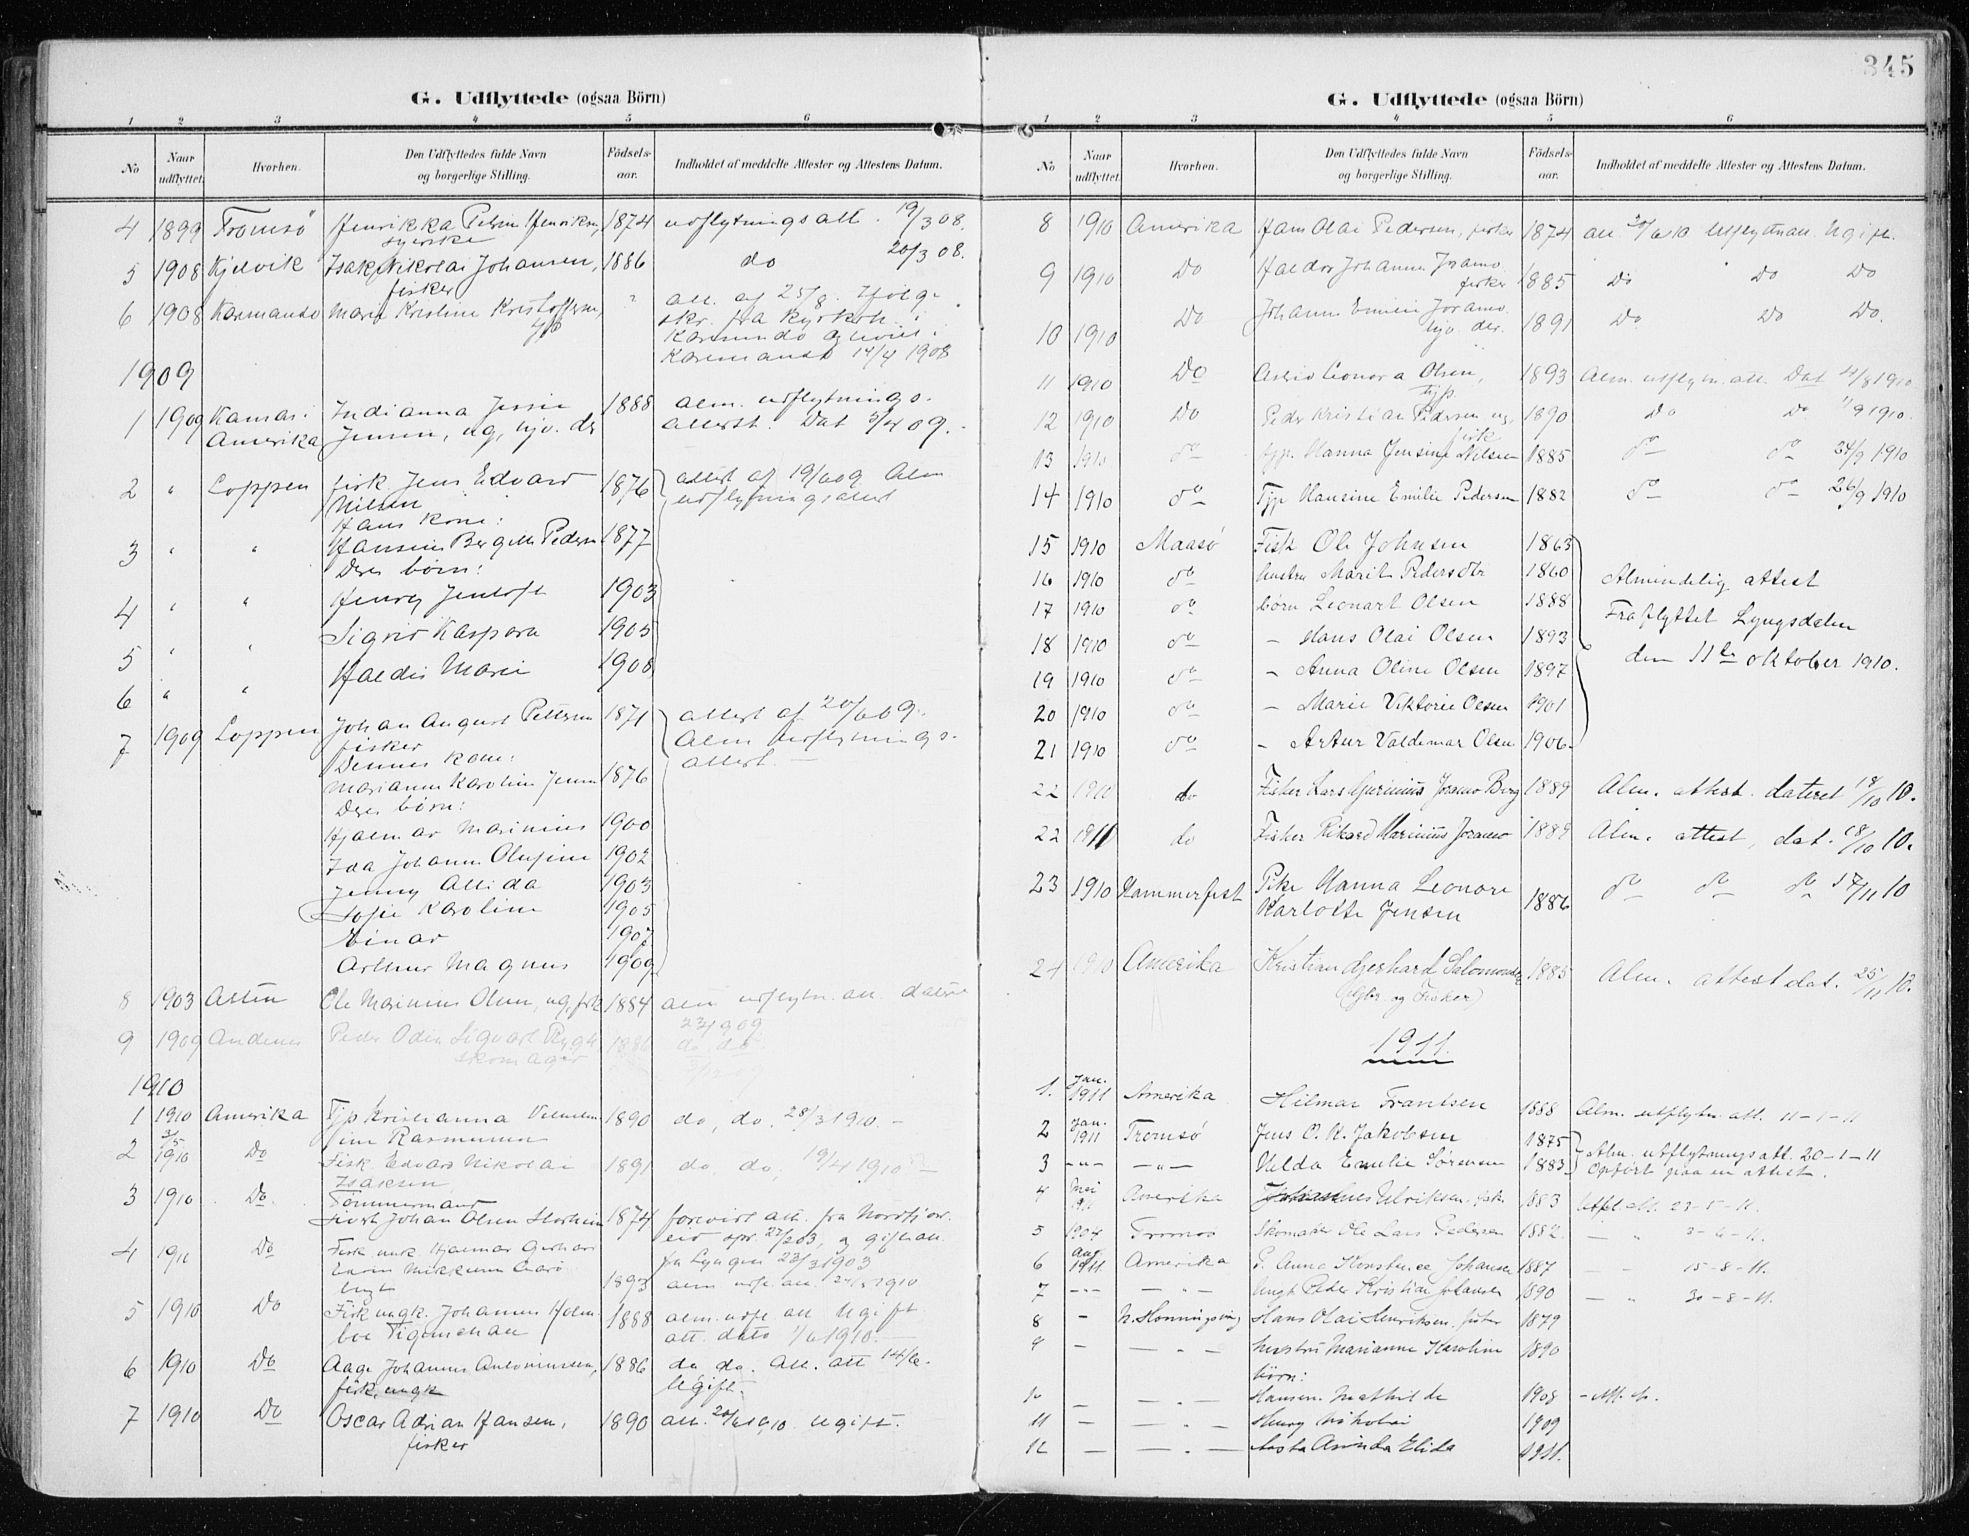 345
G. Udflyttede (ogsaa Börn)
1 2 3 4 5 6
No Naar udflyttet. Hvorhen. Den Udflyttedes fulde Navn og borgerlige Stilling. Födsels-aar. Indholdet af meddelte Attester og Attestens Datum.
4 1899 Tromsö Henrikka Petrin Henriksen, 1874 udflytningsatt. 19/3 08.
syerske
5 1908 Kjelvik Isak Nikolai Johansen, 1886 do 20/3 08.
fisker
6 1908 Karmando Maria Kristine Kristoffersen, " att. af 25/8.
skr. fra
14/4 1908
1909
1 1909 Kansas i Indianna Jessie 1888 alm. udflytnings-
Amerika Jensen, ug, hjv. dr attest. Dat 3/4 09.
2 " Loppen fisk Jens Edvard 1876 attest af 19/6 09 Alm
Nilsen udflytningsattest
Hans kone:
3 " " Hansine Bergitte Peders 1877
Deres börn:
4 " " Henry Jentoft 1903
5 " " Sigrid Kaspara 1905
6 " " Haldis Marie 1908
7 1909 Loppen Johan August Pettersen 1871 attest af 20/6 09.
fisker Alm udflytnings-
Dennes kone: attest. —
Marianne Karoline Jensen 1876
Deres börn:
Hjalmar Marinius 1900
Ida Johanne Olufine 1902
Jenny Alida 1903
Sofie Karoline 1905
Einar 1907
Arthur Magnus 1909
8 1903 Alten Ole Marinius Olsen, ug, fisk 1884 alm udflytn. att. dater
23/9 09
9 1909 Andenes Peder Odin Sigvart do do.
skomager
1910
1 1910 Amerika Tjp Kristianna 1890 do, do. 28/3 1910. –
Rasmussen
2 3/5 1910 Do Fisk Edvard Nikolai 1891 do, do, 19/4 1910 –
Isaksen
3 1910 Do. Tömmermand
Sivert Johan Olsen Storheim 1874 forevist att. fra Nordfjor-
eid spr. 27/2 03, og giftean.
4 1910 Do Fisk. unk. Hjalmar Gerhard fra Lyngen 23/3 1903
1893 alm udfl. att. 1910
5 1910 Do Fisk ungk. Johannes Holm- 1888 alm. udfl att Ugift
boe att. dato 1/6 1910. —
6 1910 Do Aage Johannes Antoniussen, 1886 do do. att. att 14/6.
fisk, ungk Ugift.
7 1910 Do Oscar Adrian Hansen, 1890 att. 20/6 1910. Ugift.
fisker
G. Udflyttede (ogsaa Börn)
1 2 3 4 5 6
No Naar udflyttet. Hvorhen. Den Udflyttedes fulde Navn og borgerlige Stilling. Födsels-aar. Indholdet af meddelte Attester og Attestens Datum.
8 1910 Amerika Hans Olai Pedersen, fisker 1874 att. 20/6 10 Utflyttnatt. Ugift.
9 1910 Do Haldor Johannes Joramo 1885 Do Do Do
fisker
10 1910 Do Johanne Emilie Joramo 1891 Do Do Do.
hjv. der.
11 1910 Do Astrid Leonora Olsen, 1893 Alm. utflytn. att. Dat 4/8 1910
tjp.
12 1910 Do Peder Kristian Pedersen ug. 1890 Do Do 1/9 1910.
fisk
13 1910 do tjp. Hanna Jensine Nilsen 1885 do do 24/9 1910
14 1910 do Tjp Hansine Emilie Pedersen 1882 do do 26/9 1910
15 1910 Maasö Fisk Ole Johnsen 1863
16 1910 do hustru Marit Pedersdtr 1860 Almindelig attest
17 1910 do börn Leonart Olsen 1888 Fraflyttet Lyngsdalen
18 1910 do – Hans Olai Olsen 1893
19 1910 do – Anna Oline Olsen 1897 den 11te oktober 1910.
20 1910 do – Marie Viktorie Olsen 1901
21 1910 do – Artur Valdemar Olsen 1906
22 1910 do Fisker Lars Joramo Berg 1889 Alm. attest. dateret 18/10 10.
22 1911 do Fisker Rikard Marinius Joramo 1889 Alm. attest, dat. 18/10 10.
23 1910 Hammerfest Pike Hanna Leonore 1886 do do do 17/11 10
Karlotte Jensen
24 1910 Amerika Kristian Gjerhard Salomonsen 1885 Alm. attest dat. 25/11 10.
(Gbr og Fisker)
1911.
1. Jan. 1911 Amerika Hilmar Frantsen 1888 Alm. utflytn att. 11-1-11
2 Jan. 1911 Tromsö Jens O. K. Jakobsen 1875 Alm. utflytningsatt. 20-1-11
3 –"– –"– Helda Emilie Sörensen 1883 Opfört paa en attest.
4 Mai 1911 Amerika Ulriksen, fisk 1883 Utfl. att. 23-5-11.
5 1904 Tromsö Skomaker Ole Lars Pedersen 1882. — " 3-6-11.
6 Aug 1911. Amerika P. Anna Konstance Johansen 1887 — " 15-8-11.
7 –"– –"– Ungk Peder Kristian Johansen 1890 — " 30-8-11.
8 – N. Honningsvåg Hans Olai Henriksen, fisker 1879
9 — —"— hustru Marianne Karoline 1890
börn:
10 — —"— Hansen. Mathilde 1908
11 — —"— Henry Nikolai 1909
12 — —"— Asta Elida 1911.